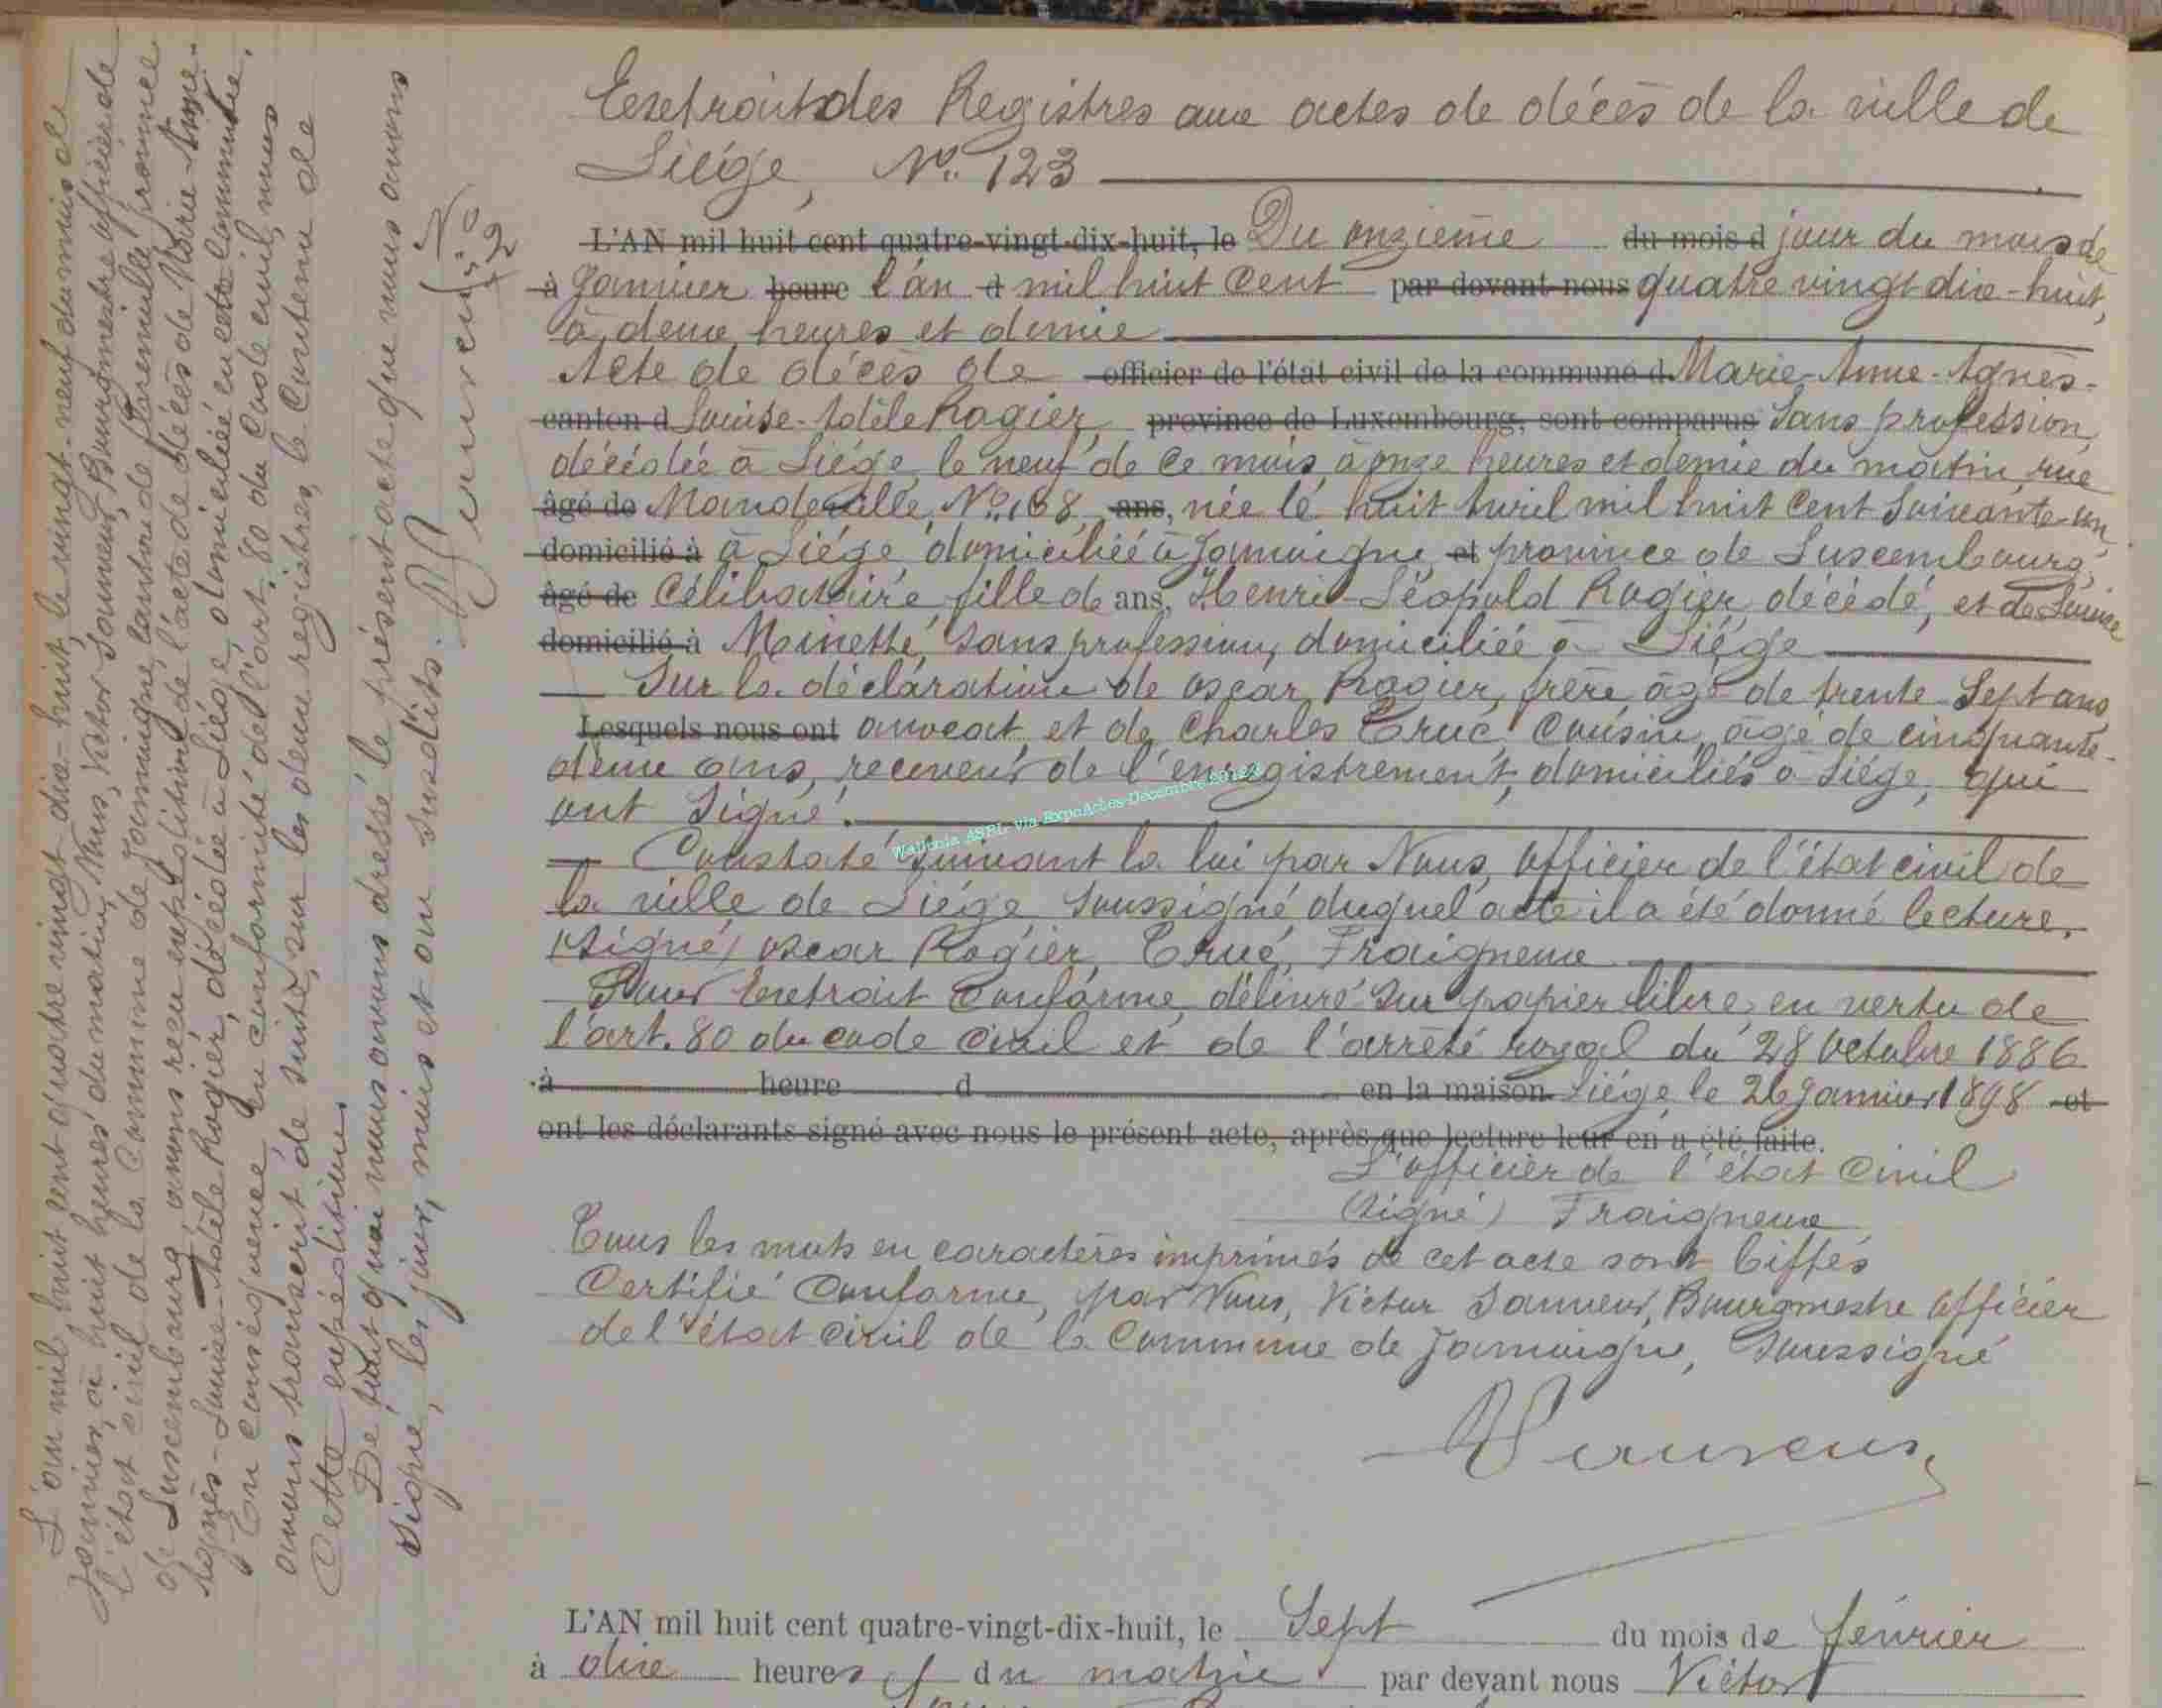 Extrait des Registres aux actes de décès de la ville de
Liége, No. 123
L'AN mil huit cent quatre-vingt-dix-huit, le Du onzième du mois d jour du mois de
à Janvier heure l'an d mil huit Cent par devant nous quatre vingt dix-huit,
à deux heures et demie
Acte de décès de officier de l'état civil de la commune d Marie-Anne-Agnès-
canton d Louise-Adèle Rogier, province de Luxembourg, sont comparus Sans profession,
décédée à Liége, le neuf de ce mois, à onze heures et demie du matin, rue
âgé de Mandeville, No. 168, ans, née le huit Avril mil huit Cent Soixante-un,
domicilié à à Liége, domiciliée à Jamoigne, et province de Luxembourg,
âgé de Célibataire, fille de ans, Henri-Léopold Rogier, décédé, et de Louise
domicilié à Minette, Sans profession, domiciliée à Liége
Sur la déclaration de Oscar Rogier, frère, âgé de trente-Sept ans,
Lesquels nous ont avocat, et de Charles Crué, Cousin, âgé de cinquante-
deux ans, receveur de l'enregistrement, domiciliés à Liége, qui
ont Signé.
Wallonia ASBL via ExpoActes-Décembre
Constaté Suivant la loi par Nous, Officier de l'état civil de
la ville de Liége Soussigné, duquel acte il a été donné lecture.
(Signé) Oscar Rogier, Crué, Fraigneux
Pour Extrait Conforme, délivré Sur papier libre, en vertu de
l'art. 80 du code Civil et de l'arrêté royal du 28 Octobre 1886
à heure d en la maison Liége, le 26 Janvier 1898 et
ont les déclarants signé avec nous le présent acte, après que lecture leur en a été faite.
L'officier de l'état Civil
(Signé) Fraigneux
Tous les mots en caractères imprimés de cet acte sont biffés
Certifié Conforme, par Nous, Victor Sonneur, Bourgmestre Officier
de l'état Civil de la Commune de Jamoigne, Soussigné
L'AN mil huit cent quatre-vingt-dix-huit, le Sept du mois de février
à dix heures du matin par devant nous Victor
No. 2
L'an mil huit cent quatre vingt-dix-huit, le vingt-neuf du mois de
Janvier, à huit heures du matin, Nous, Victor Sonneur, Bourgmestre officier de
l'état civil de la Commune de Jamoigne, canton de Florenville, province
de Luxembourg, avons reçu expédition de l'acte de décès de Marie-Anne-
Agnès-Louise-Adèle Rogier, décédée à Liége, domiciliée en cette commune.
En conséquence, en conformité de l'art. 80 du Code civil, nous
avons transcrit de suite, sur les deux registres, le Contenu de
Cette expédition.
De tout quoi nous avons dressé le présent acte que nous avons
Signé, les jour, mois et an susdits.